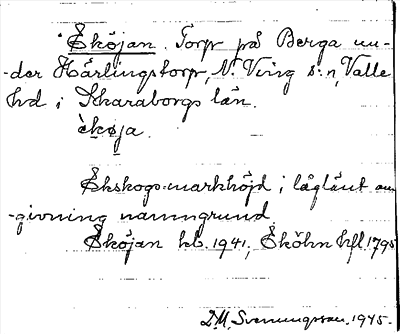 Eköjan. Torp på Berga un-
-der Härlingstorp, N. Ving s:n, Valle
hd i Skaraborgs län.
èkøja.
Ekskogs-markhöjd i låglänt om-
-givning namngrund
Eköjan kb. 1941, Eköhn hfl. 1795
D.M. Svenungsson. 1945.